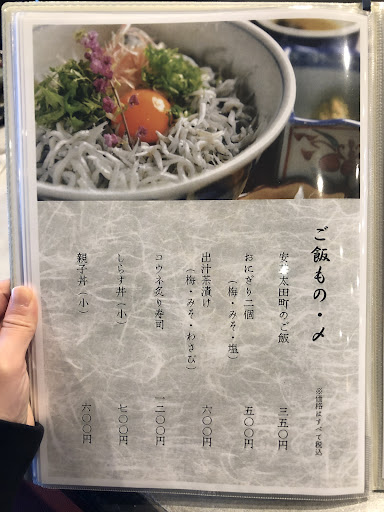 ご飯もの・〆
※価格はすべて税込
安芸太田町のご飯 三五〇円
おにぎり二個 五〇〇円
(梅・みそ・塩)
出汁茶漬け 六〇〇円
(梅・みそ・わさび)
コウネ炙り寿司 一二〇〇円
しらす丼(小) 七〇〇円
親子丼(小) 六〇〇円